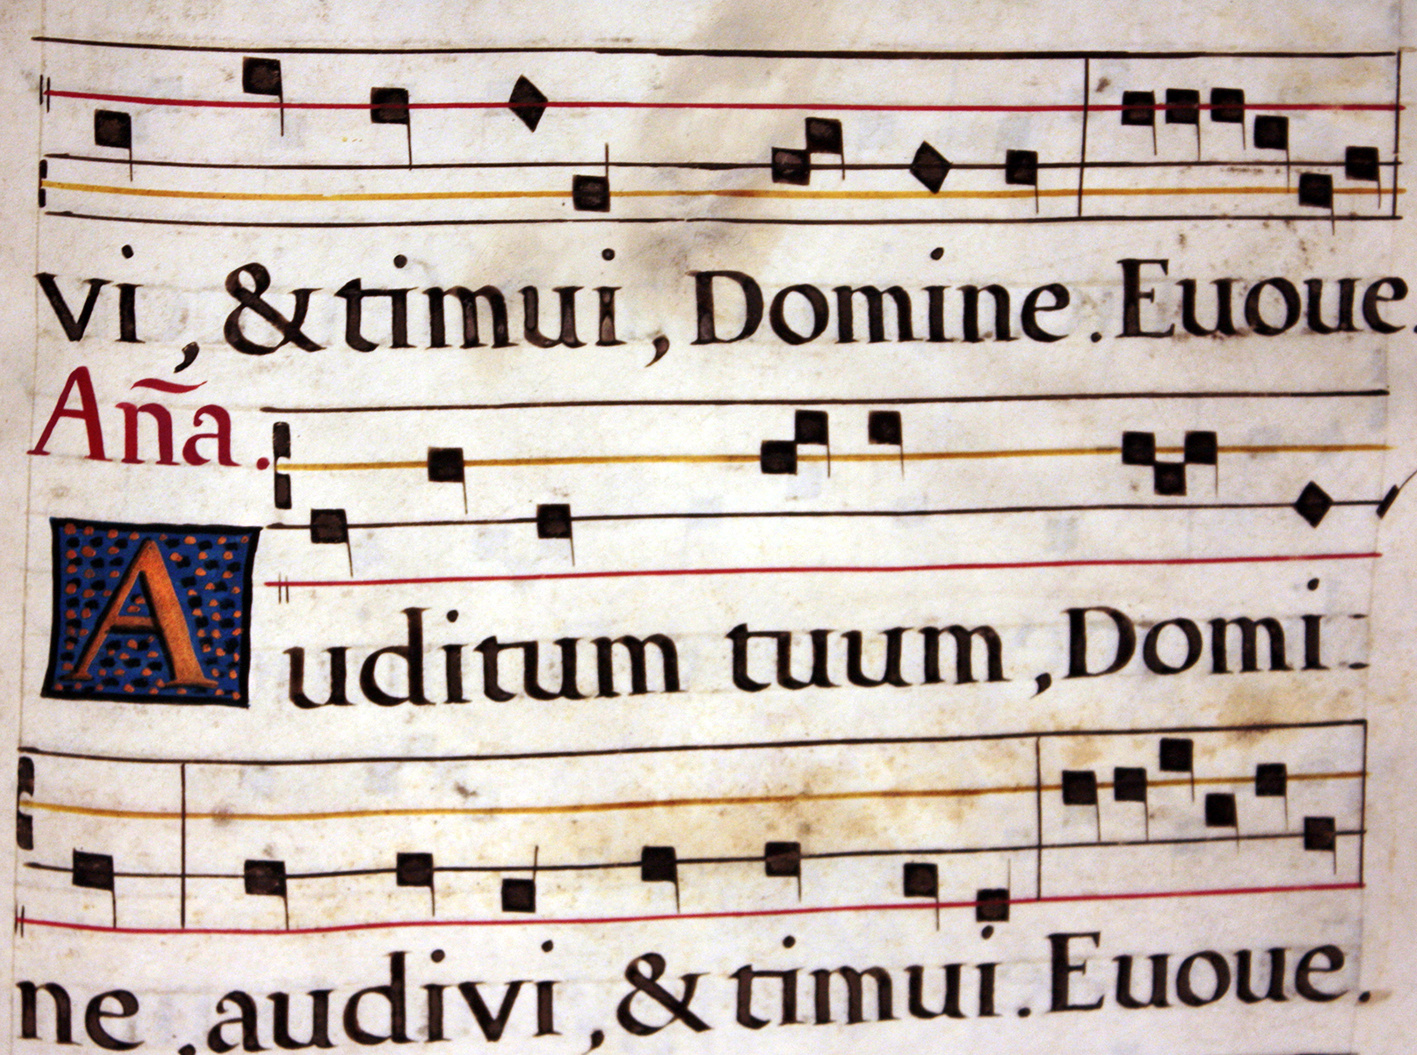 vi, & timui, Domine. Euoue.
Aña.
Auditum tuum, Domi:
ne, audivi, & timui. Euoue.